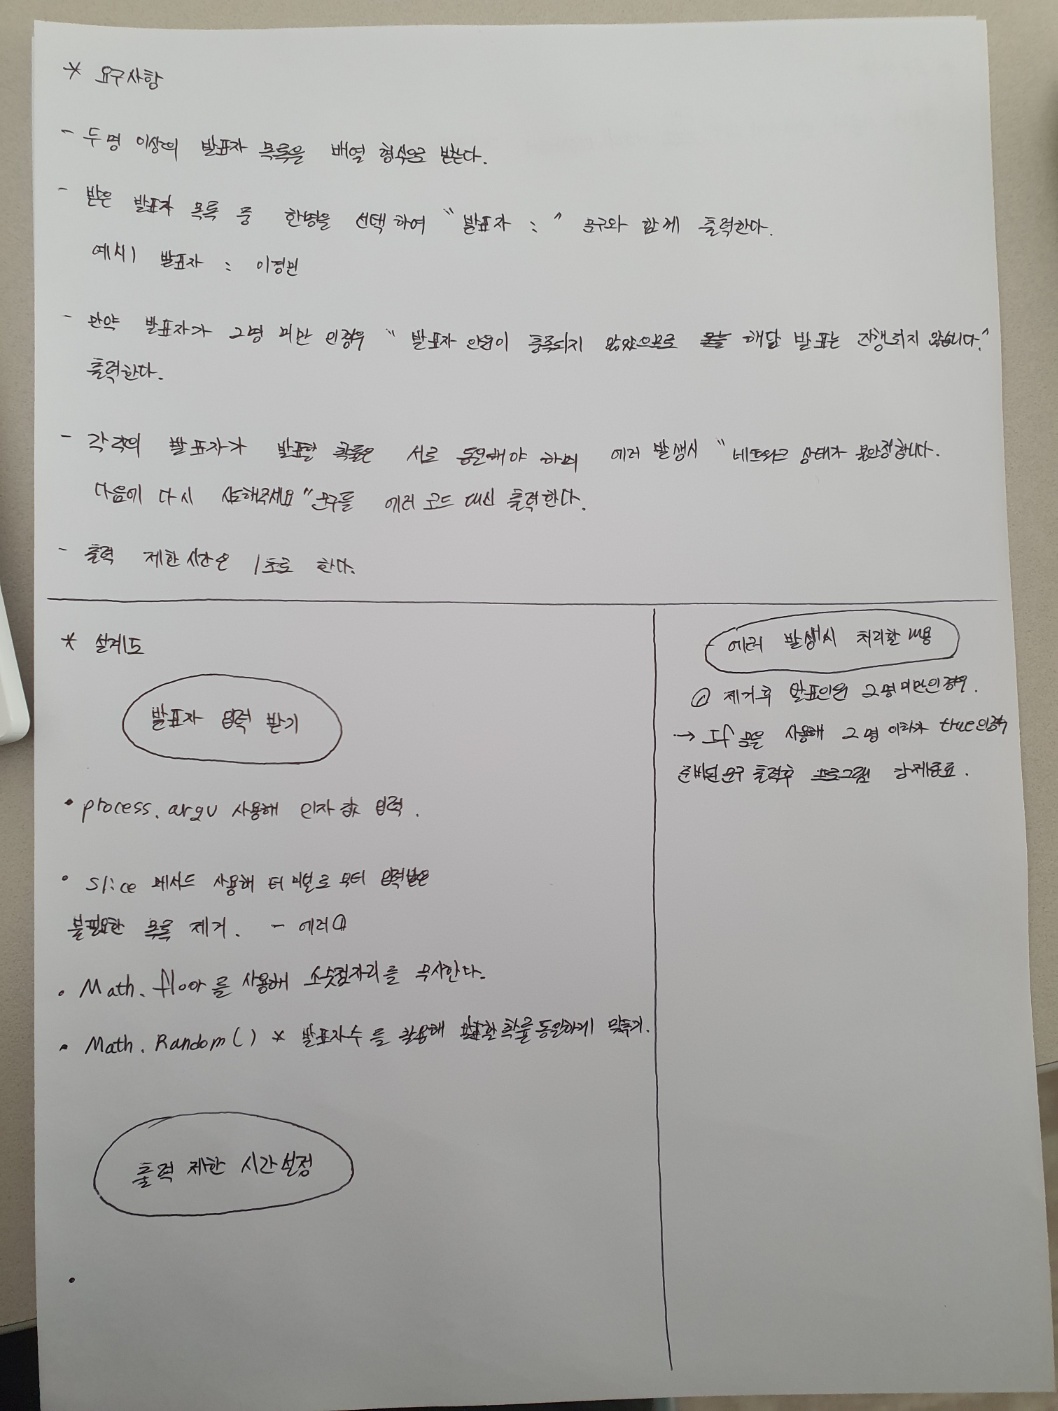 * 요구사항
- 두명 이상의 발표자 목록을 배열 형식으로 받는다.
- 받은 발표자 목록 중 한명을 선택하여 "발표자 : " 문구와 함께 출력한다.
예시) 발표자 : 이경빈
- 만약 발표자가 2명 미만 인경우 " 발표자 인원이 충족되지 않았으므로 해당 발표는 진행되지 않습니다."
출력한다.
- 각각의 발표자가 발표할 확률은 서로 동일해야 하며 에러 발생시 "네트워크 상태가 불안정합니다.
다음에 다시 시도해주세요" 문구를 에러 코드 대신 출력한다.
- 출력 제한시간은 1초로 한다.
* 설계도
발표자 입력 받기
• process.argv 사용해 인자 값 입력.
• slice 메서드 사용해 터미널로 부터 입력받은
불필요한 목록 제거. - 에러①
• Math.floor를 사용해 소숫점자리를 무시한다.
• Math.Random() * 발표자수를 활용해 발표할 확률 동일하게 맞추기.
출력 제한 시간 설정
•
에러 발생시 처리할 내용
① 제거 후 발표인원 2명 미만인 경우.
→ If 문을 사용해 2명 이하가 true인경우
준비된 문구 출력후 프로그램 강제종료.